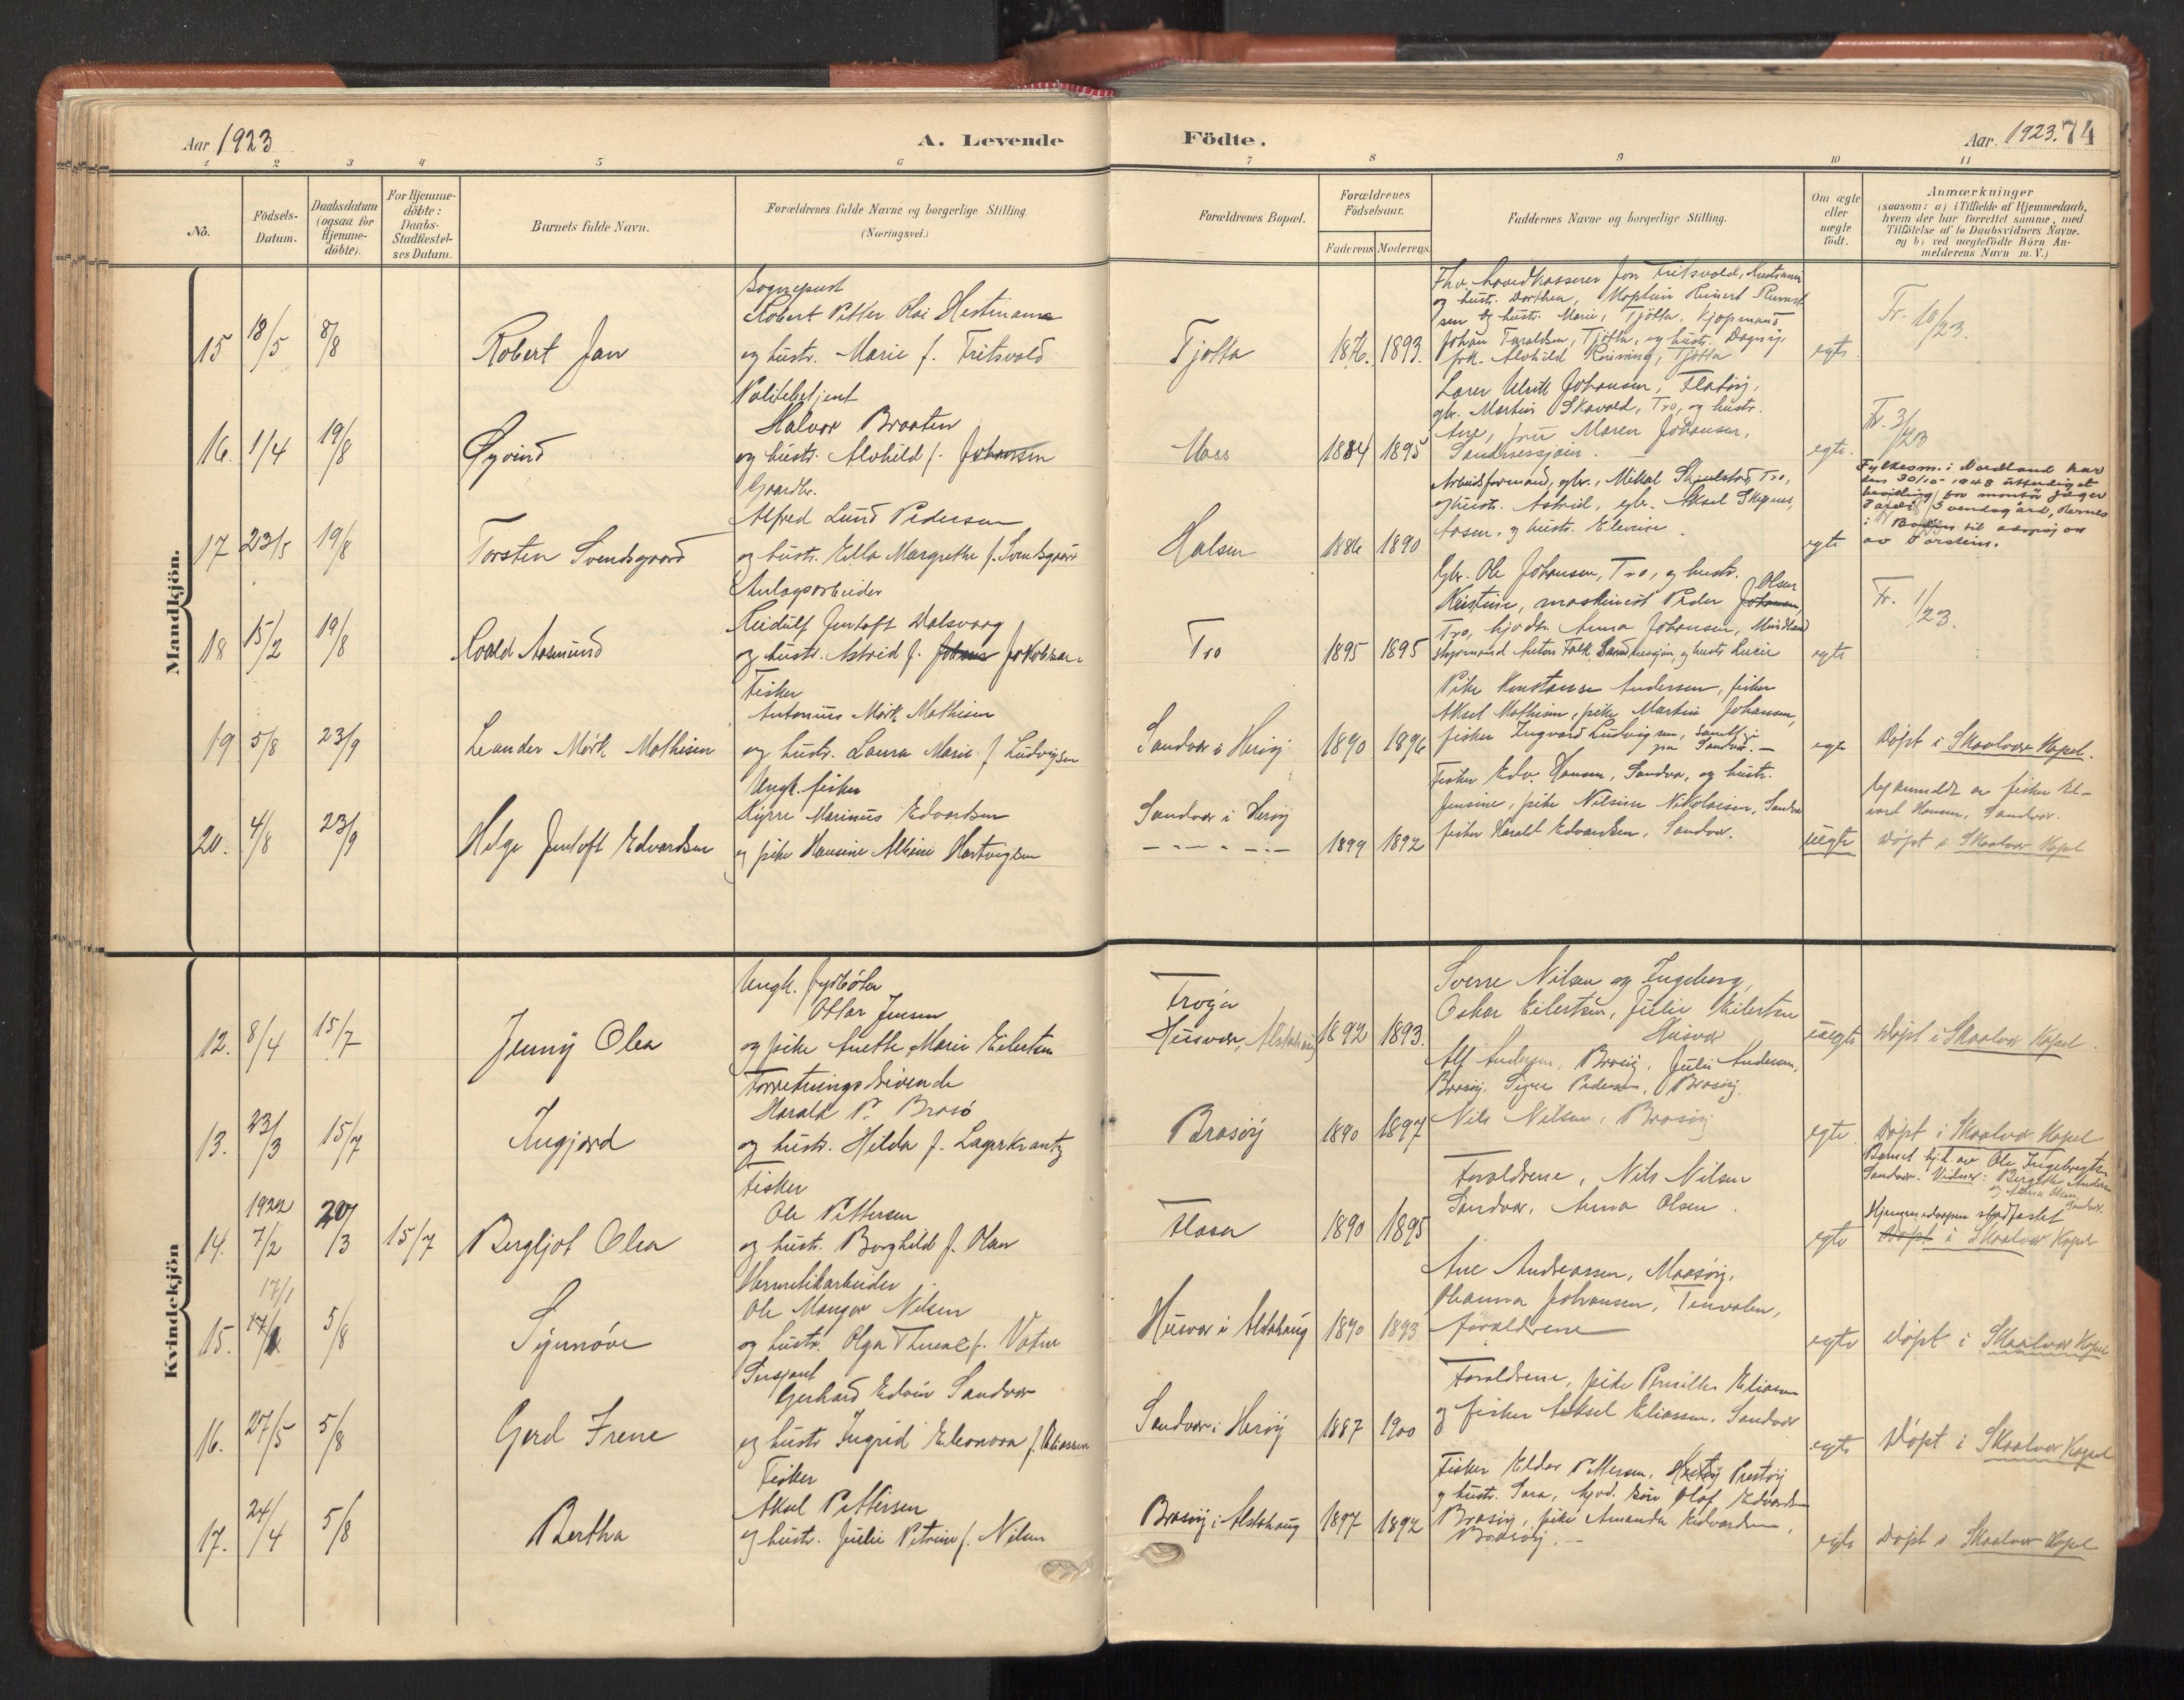 Aar 1923
A. Levende
Födte.
Aar. 1923. 74
1 2 3 4 5 6 7 8 9 10 11
No.
Födsels-
Datum.
Daabsdatum
(ogsaa for
Hjemme-
döbte).
For Hjemme-
döbte:
Daabs-
Stadfæstel-
ses Datum.
Barnets fulde Navn.
Forældrenes fulde Navne og borgerlige Stilling
(Næringsvei.)
Forældrenes Bopæl.
Forældrenes
Födselsaar.
Faderens Moderens
Faddernes Navne og borgerlige Stilling.
Om ægte
eller
uægte
födt.
Anmærkninger
(saasom: a) i Tilfælde af Hjemmedaab,
hvem der har forrettet samme, med
Tilföielse af to Daabsvidners Navne,
og b) ved uægtefödte Börn An-
melderens Navn m. V.)
Mandkjön.
15 18/5 8/8
Robert Jan
Sogneprest
Robert Petter Olai Hestmann
og hustr. Marie f. Fritsvold
Tjøtta
1876. 1893.
og hustr. Dorthea, Kaptein Reinert
sen og hustr. Marie, Tjøtta. Kjøpmand
Johan Taraldsen, Tjøtta, og hustr. Dagny,
frk. Alvhild Rønning, Tjøtta
egte.
Fr. 10/23.
16. 1/4 19/8
Øyvind
Politibetjent
Halvor Braaten
og hustr. Alvhild f. Johansen
Moss
1884 1895
Lærer Ulrik Johansen, Flatøy,
gbr. Martin Skavold, Tro, og hustr.
Ane, fru Maren Johansen,
Sandnessjøen.
egte.
Fr. 3/23
17 23/5 19/8
Torsten Svendsgaard
Gaardbr.
Alfred Lund Pedersen
og hustr. Ella Margrethe f. Svendsgaard
Halsen
1886 1890
Arbeidsformand, gbr. Mikal Skjelstad, Tro,
og hustr. Astrid, gbr. Aksel
Aasen, og hustr. Elevine.
egte
Fylkesm. i Nordland har
den 30/10-1948 utferdiget
bevilling for montør Jæger
Svendsgård,
i til adopsjon
av Torstein.
18 15/2 19/8
Roald Aasmund
Anlagsarbeider
Reidulf Jentoft Dalsvaag
og hustr. Astrid f. Jakobsen
Tro
1895 1895
Gbr. Ole Johansen, Tro, og hustr.
Olsen
Kristine, maskinist Peder Johansen,
Tro, hjvdtr. Anna Johansen, Mindland
styrmand Anton Falk, Sandnessjøen, og hustr. Lucie
egte
Fr. 1/23.
19 5/8 23/9
Leander Mørk Mathisen
Fisker
Antonius Mørk Mathisen
og hustr. Laura Marie f. Ludvigsen
Sandvær i Herøy
1890 1896
Pike Konstanse Andersen, fisker
Aksel Mathisen, pike Martine Johansen,
fisker Ingvard Ludvigsen, samtl.
fra Sandvær.
egte
Døpt i Skaalvær Kapel.
20. 4/8 23/9
Helge Jentoft Edvardsen
Ungk. fisker
Kyrre Marinus Edvardsen
og pike Hansine Albine Hartvigsen
Sandvær i Herøy
1899 1892
Fisker Edv. Hansen, Sandvær, og hustr.
Jensine, pike Nilsine Nikolaisen, Sandvær
fisker Harald Edvardsen, Sandvær.
uegte
Uegte anmeldt av fisker Ed-
vard Hansen, Sandvær.
Døpt i Skaalvær Kapel
Kvindekjön
12. 8/4 15/7
Jenny Olea
Ungk. fyrbøter
Ottar Jensen
og pike Anette Marie Eilertsen
Husvær, Alstahaug
1892 1893.
Sverre Nilsen og Ingeborg,
Oskar Eilertsen, Julie Eilertsen
Husvær
uegte
Døpt i Skaalvær Kapel.
13. 23/3 15/7
Ingjerd
Forretningsdrivende
Harald P. Brasø
og hustr. Hilda f. Lagerkrantz
Brasøy
1890 1897
Alf Andersen, Brasøy, Julie Andersen,
Brasøy. Signe Pedersen, Brasøy
Nils Nilsen, Brasøy
egte.
Døpt i Skaalvær Kapel
14. 1922 7/2 20/3 15/7
Bergljot Olea
Fisker
Ole Pettersen
og hustr. Borghild f. Olsen
Flasa
1890 1895
Forældrene, Nils Nilsen
Sandvær, Anna Olsen.
egte
Barnet hj.d. av Ole Ingebrigtsen
Sandvær. Vidner: Bergithe Andersen
og Anna Olsen, Sandvær.
Hjemmedaapen stadfæstet
Døpt i Skaalvær Kapel
15. 17/1 5/8
Synnøve
Hermetikarbeider
Ole Mangor Nilsen
og hustr. Olga Therese f. Vatne
Husvær i Alstahaug
1890 1893
Ane Andreassen, Maasøy,
Oleanna Johansen, Tenvalen,
forældrene
egte
Døpt i Skaalvær Kapel
16. 27/5 5/8
Gerd Irene
Sersjant
Gerhard Edvin Sandvær
og hustr. Ingrid Eleonora f. Eliassen
Sandvær i Herøy
1887 1900
Forældrene, pike Pernille Eliassen
og fisker Aksel Eliassen, Sandvær
egte
Døpt i Skaalvær Kapel
17. 24/4 5/8
Bertha
Fisker
Aksel Pettersen
og hustr. Julie Petrine f. Nilsen
Brasøy i Alstahaug
1897 1892
Fisker Eldor Pettersen, Prestøy
og hustr. Sara, hjvd. søn Olaf Edvardsen
Brasøy, pike Amanda Edvardsen,
Brasøy.
egte
Døpt i Skaalvær Kapel